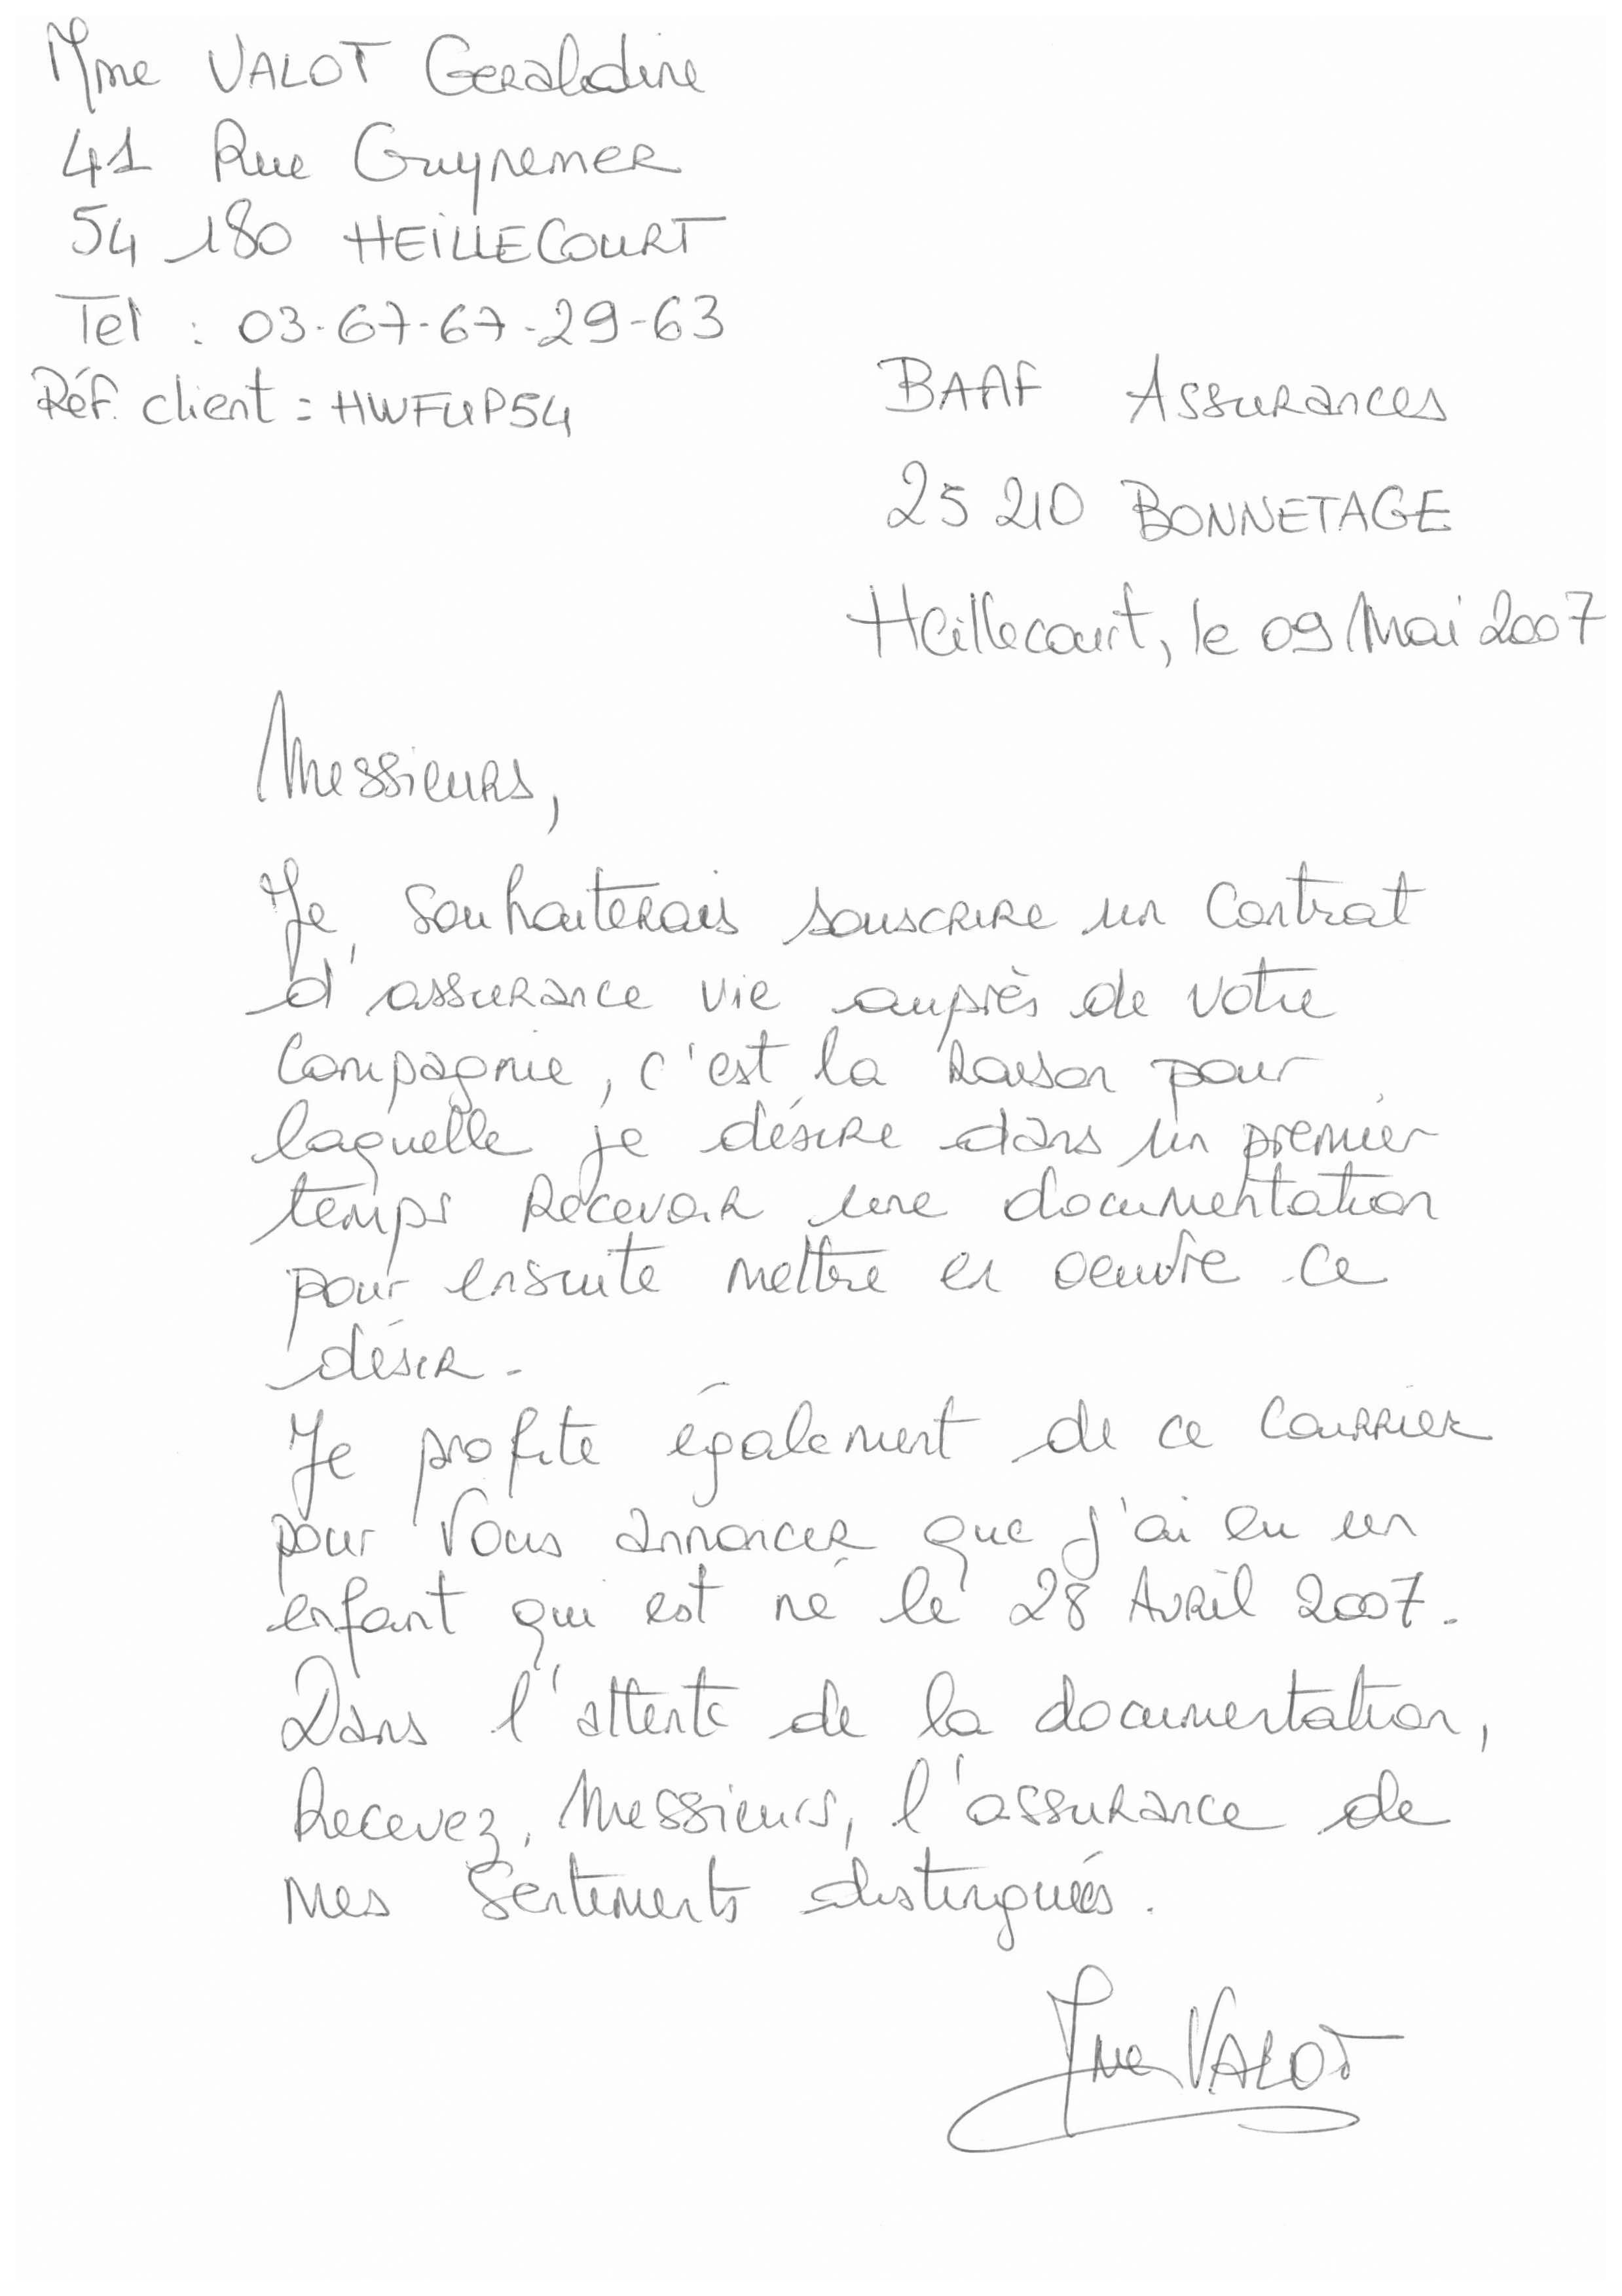 Mme VALOT Geraldine
41 Rue Guynemer
54 180 HEILLECOURT
Tel : 03-67-67-29-63
Réf. client : HWFUP54
BAAF Assurances
25 210 BONNETAGE
Heillecourt, le 09 Mai 2007
Messieurs,
Je souhaiterais souscrire un Contrat
d'assurance vie auprès de votre
Compagnie, c'est la raison pour
laquelle je désire dans un premier
temps Recevoir une documentation
pour ensuite mettre en oeuvre ce
désir.
Je profite également de ce Courrier
pour Vous annoncer que j'ai eu un
enfant qui est né le 28 Avril 2007.
Dans l'attente de la documentation,
Recevez, Messieurs, l'assurance de
mes Sentiments distingués.
Mme VALOT